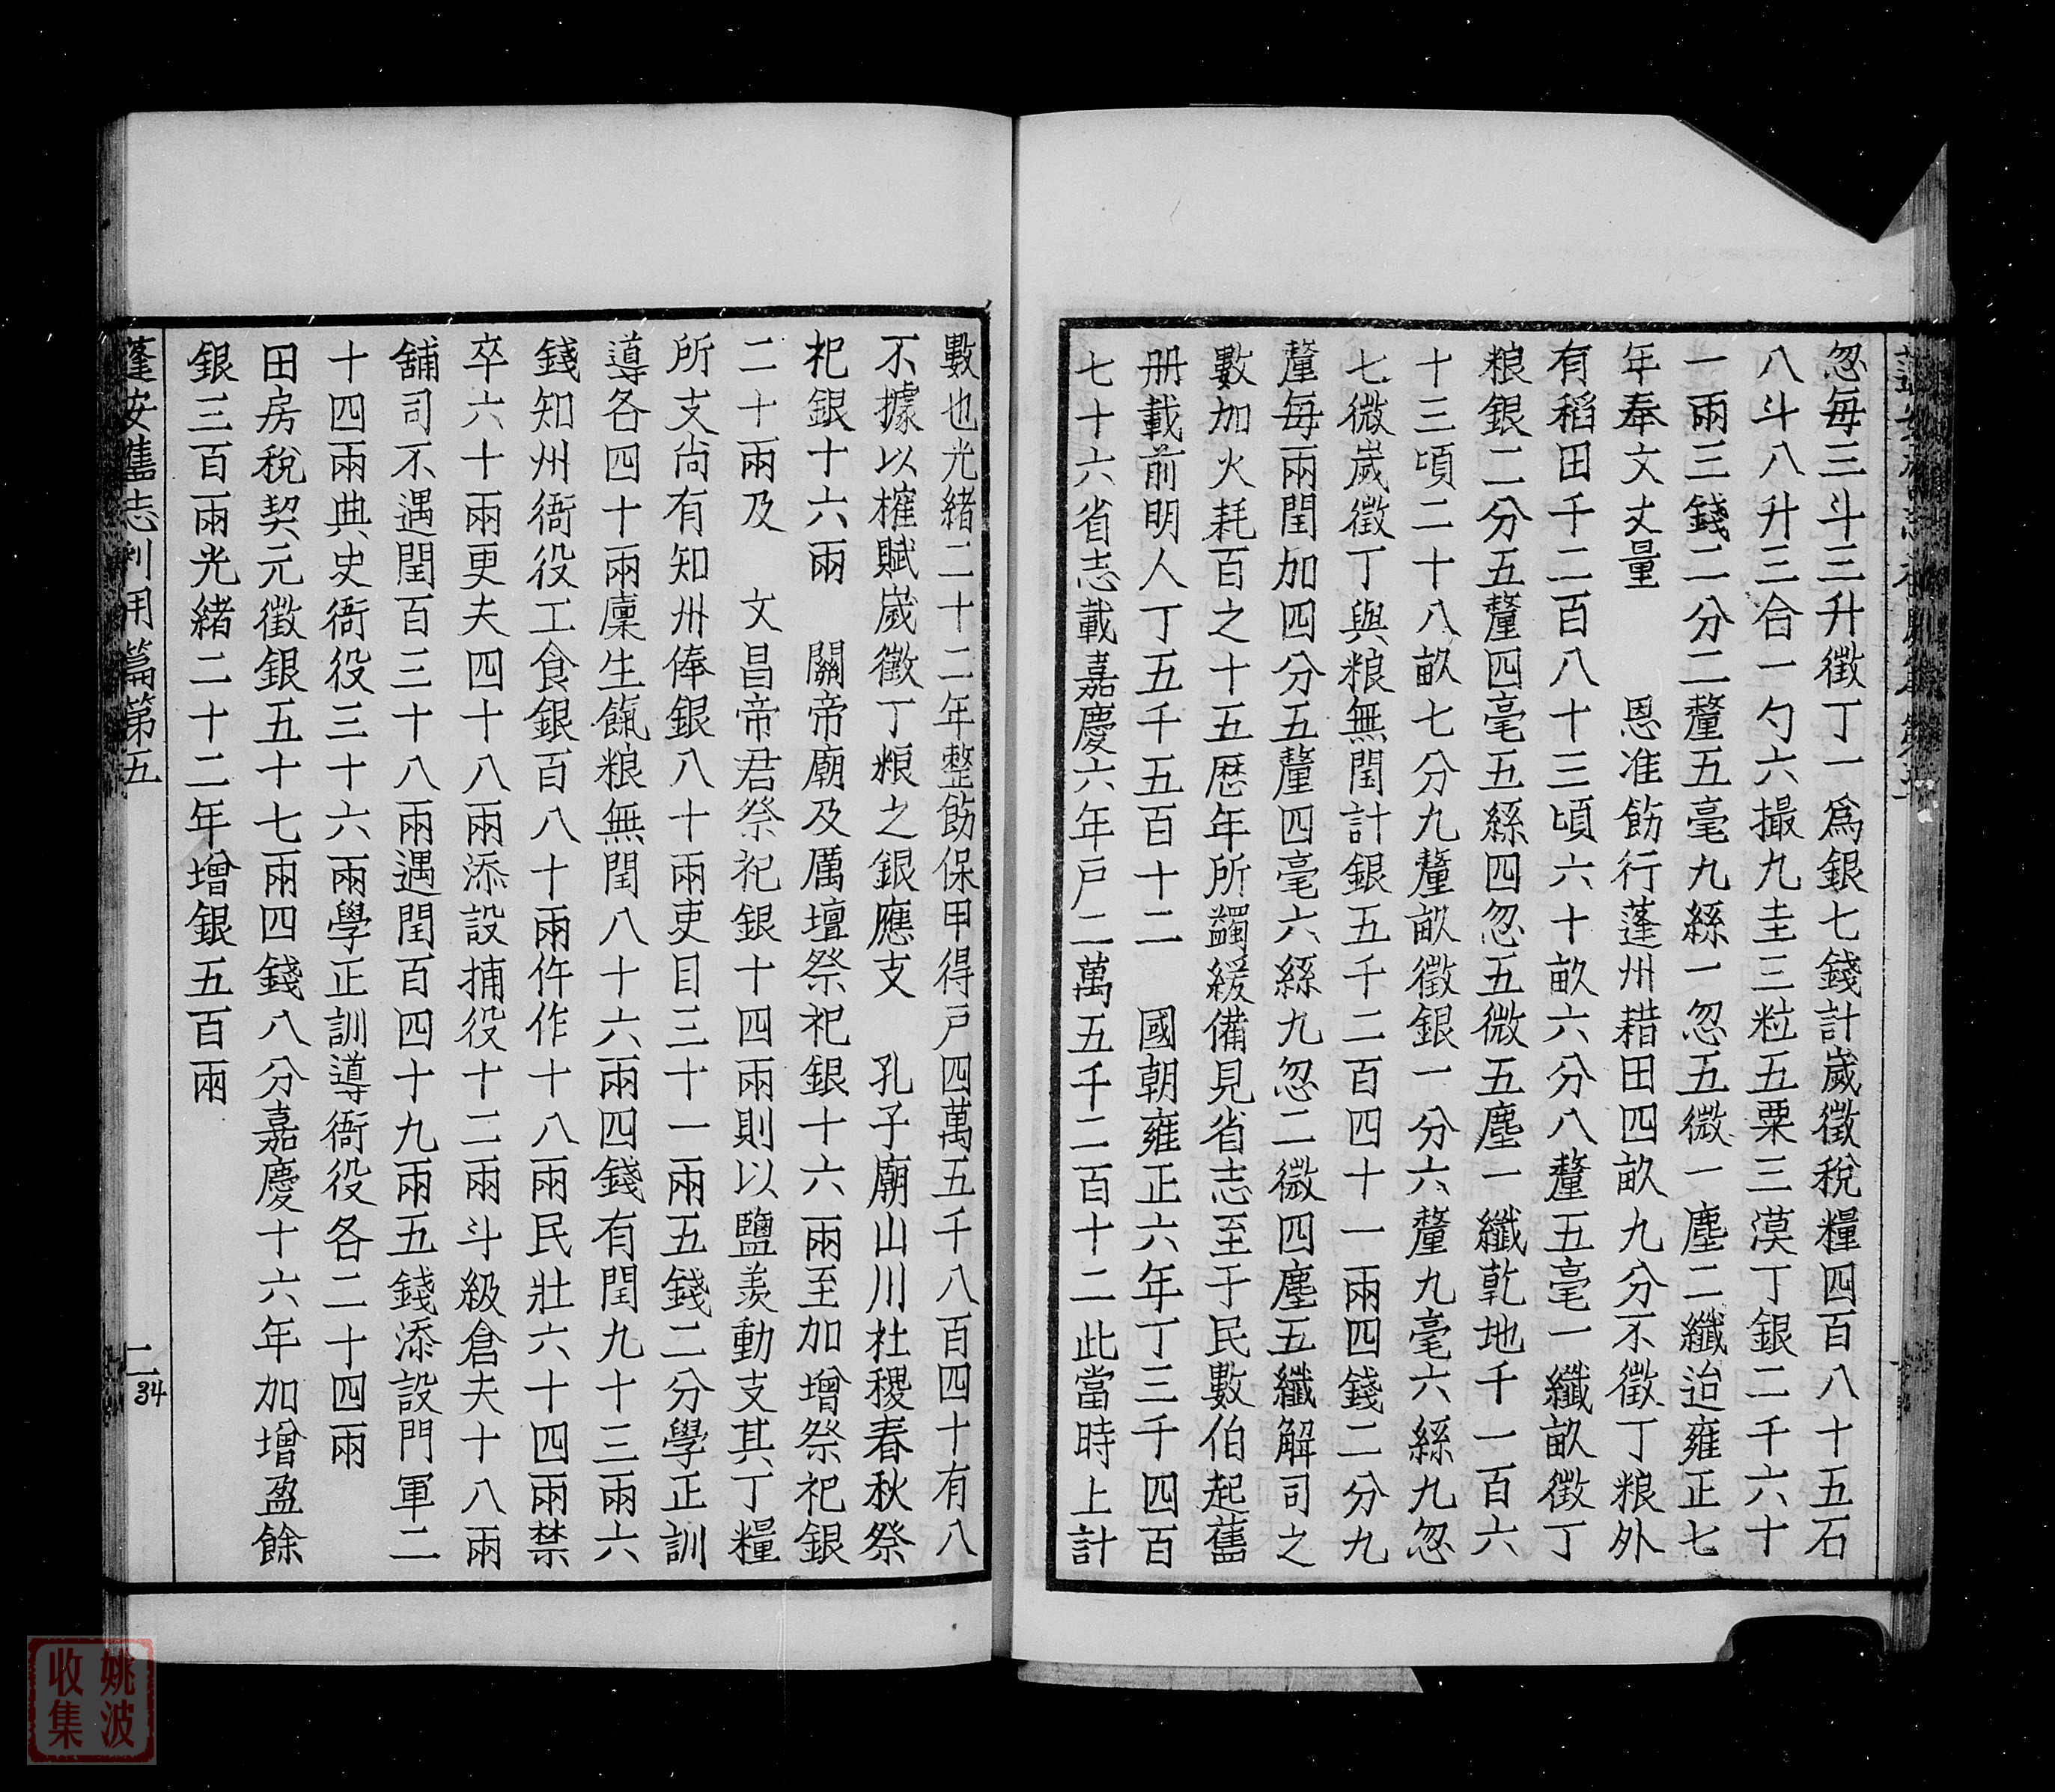 忽每三斗三升徵丁一爲銀七錢計歲徵稅糧四百八十五石
八斗八升三合一勺六撮九圭三粒五粟三漠丁銀二千六十
一兩三錢二分二釐五毫九絲一忽五微一塵二纖迨雍正七
年奉文丈量　恩准飭行蓬州耤田四畝九分不徵丁粮外
有稻田千二百八十三頃六十畝六分八釐五毫一纖畝徵丁
粮銀二分五釐四毫五絲四忽五微五塵一纖乾地千一百六
十三頃二十八畝七分九釐畝徵銀一分六釐九毫六絲九忽
七微歲徵丁與粮無閏計銀五千二百四十一兩四錢二分九
釐每兩閏加四分五釐四毫六絲九忽二微四塵五纖解司之
數加火耗百之十五歴年所蠲緩備見省志至于民數伯起舊
册載前明人丁五千五百十二　國朝雍正六年丁三千四百
七十六省志載嘉慶六年戸二萬五千二百十二此當時上計
數也光緒二十二年整飭保甲得戸四萬五千八百四十有八
不據以榷賦歲徵丁粮之銀應支　孔子廟山川社稷春秋祭
祀銀十六兩　關帝廟及厲壇祭祀銀十六兩至加增祭祀銀
二十兩及　文昌帝君祭祀銀十四兩則以鹽羨動支其丁糧
所支尚有知州俸銀八十兩吏目三十一兩五錢二分學正訓
導各四十兩廩生餼粮無閏八十六兩四錢有閏九十三兩六
錢知州衙役工食銀百八十兩仵作十八兩民壯六十四兩禁
卒六十兩更夫四十八兩添設捕役十二兩斗級倉夫十八兩
舖司不遇閏百三十八兩遇閏百四十九兩五錢添設門軍二
十四兩典史衙役三十六兩學正訓導衙役各二十四兩
田房稅契元徵銀五十七兩四錢八分嘉慶十六年加增盈餘
銀三百兩光緒二十二年增銀五百兩
蓬安舊志利用篇第五
二
34
姚波
收集